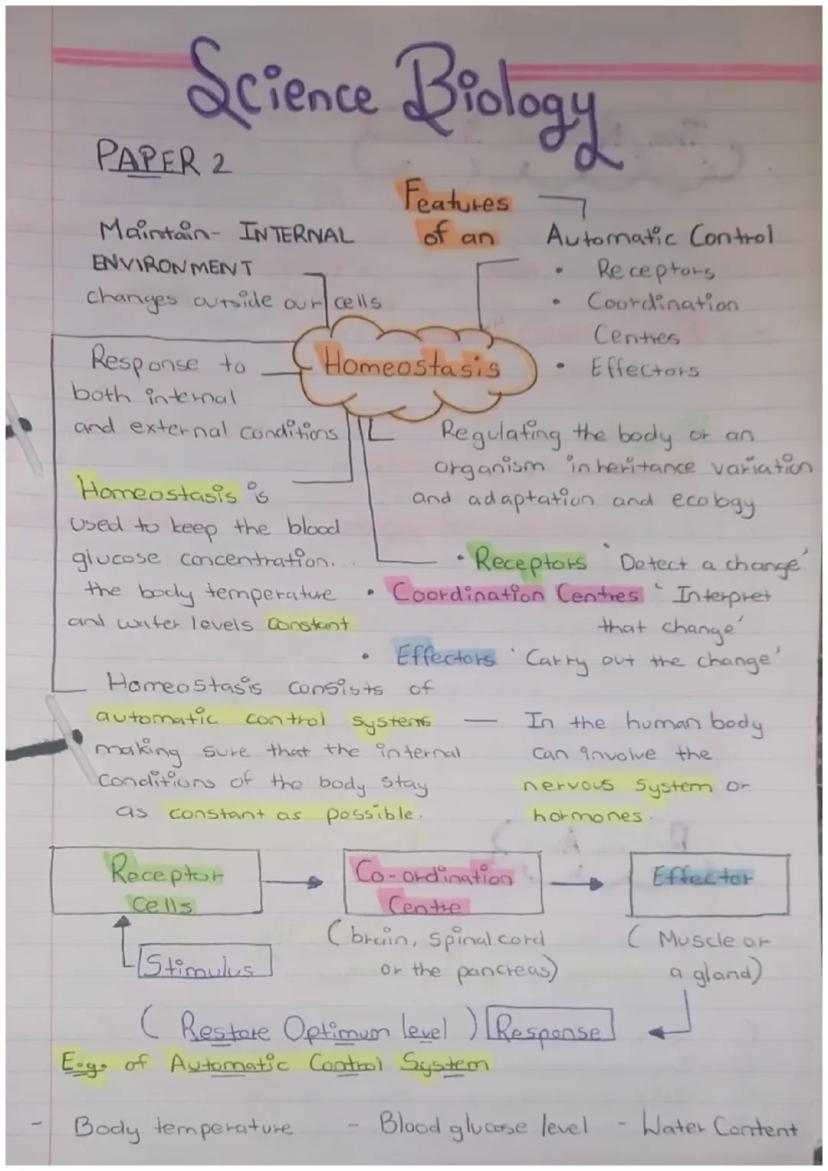 Science Biology
PAPER 2
Features
of an
Maintain- INTERNAL
ENVIRONMENT
changes outside our cells
Automatic Control
• Receptors
• Coordination
Centres
• Effectors
Homeostasis
Response to
both internal
and external conditions
Regulating the body or an
organism inheritance variation
and adaptation and ecology
Homeostasis is
used to keep the blood
glucose concentration...
the body temperature
and water levels constant
• Receptors 'Detect a change'
• Coordination Centres ' Interpret
that change'
• Effectors 'Carry out the change'
Homeostasis consists of
automatic control systems —
making sure that the internal
conditions of the body stay
as constant as possible.
In the human body
can involve the
nervous system or
hormones.
Receptor
cells
Co-ordination
Centre
Effector
Stimulus
(brain, spinal cord
or the pancreas)
( Muscle or
a gland)
( Restore Optimum level ) Response
E.g. of Automatic Control System
- Body temperature - Blood glucose level - Water Content